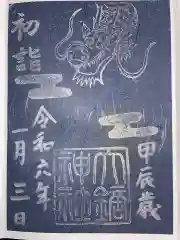 初詣
令和六年
一月三日
甲辰歳
神社